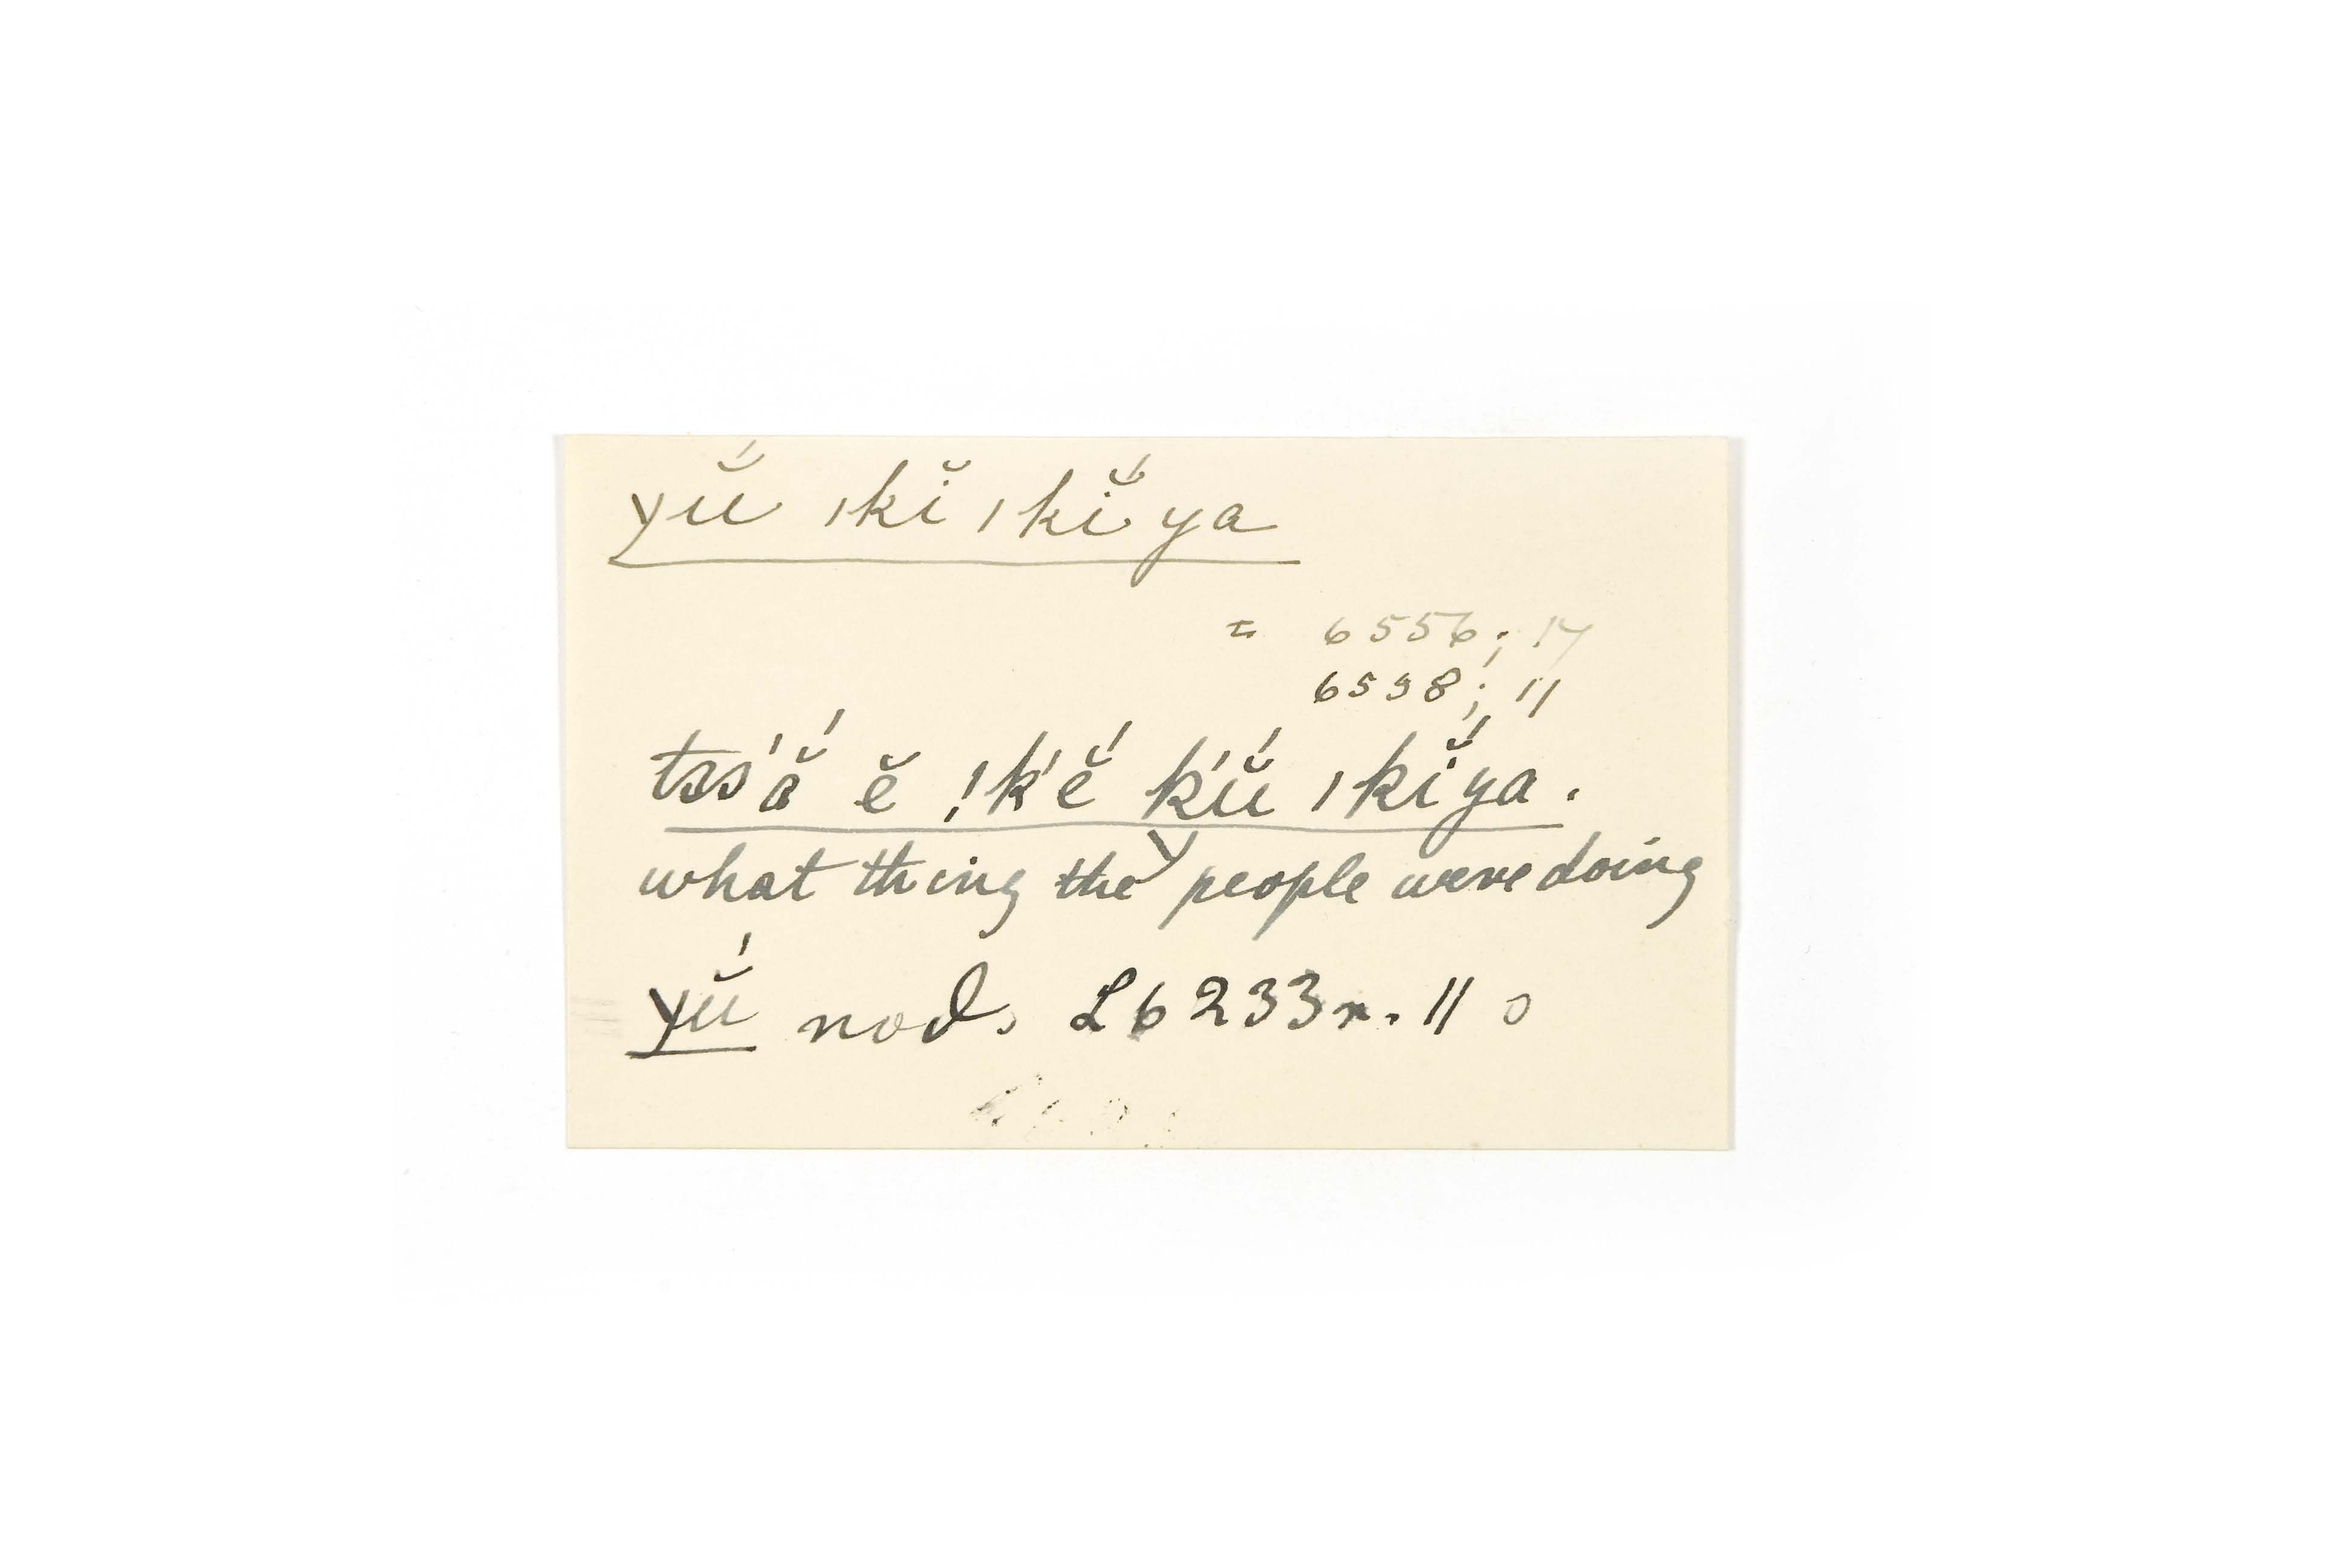 yŭ́ ǀkĭ ǀkĭ́ ya
= 6556; 17
6598; 11
tss'ắ ĕ ǃk'ĕ́ k'ŭ́ ǀkĭ́ya.
what thing they people were doing
yŭ́ nod. L 6233r. 11 o